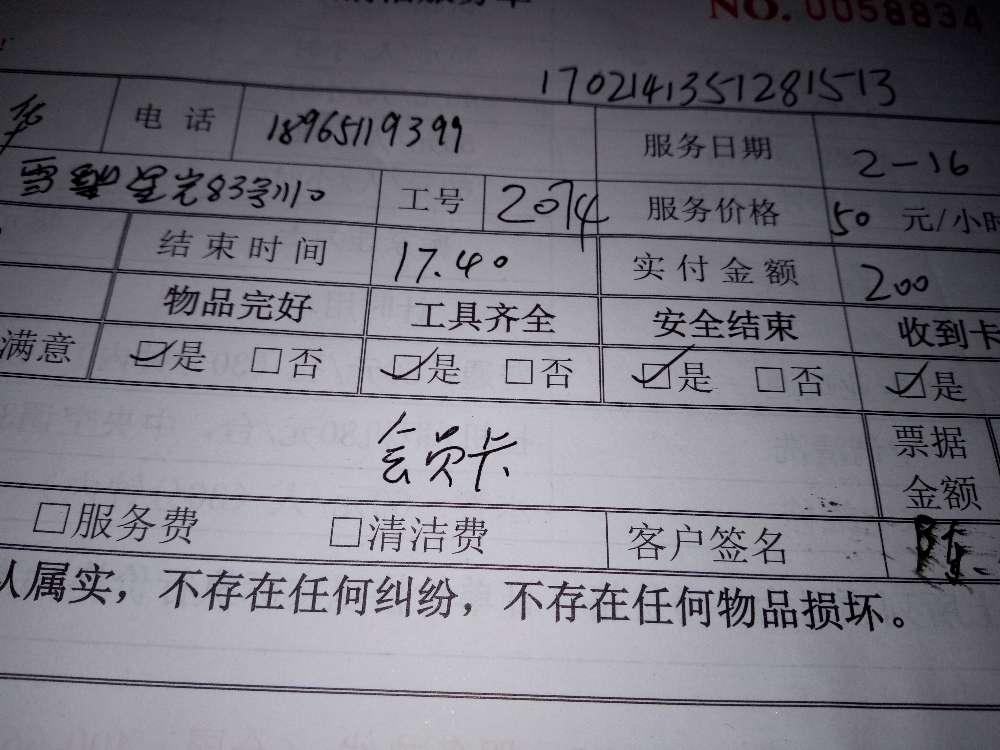 NO. 0058834
1702141351281513
电话 18965119399 服务日期 2-16
83号110 工号 2074 服务价格 50 元/小时
结束时间 17.40 实付金额 200
物品完好 工具齐全 安全结束 收到卡
满意 ☑是 □否 ☑是 □否 ☑是 □否 ☑是
会员卡 票据
金额
□服务费 □清洁费 客户签名 陈
人属实，不存在任何纠纷，不存在任何物品损坏。